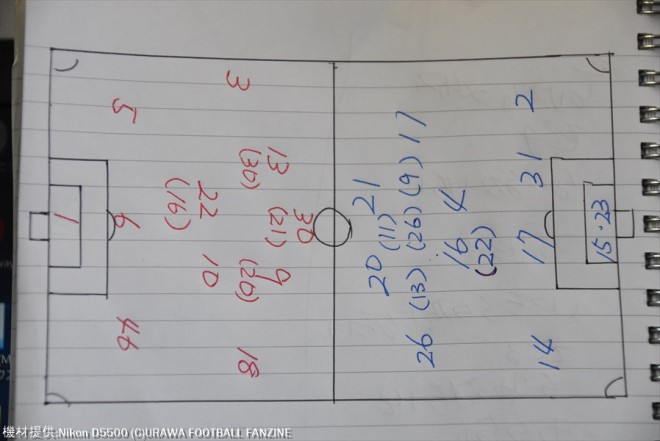 3
5
13
(30)
22
(16)
30
(21)
1
6
10
9
(20)
46
18
2
17
31
21
(11)
(9)
4
(26)
16
(22)
17
15・23
20
(13)
26
14
機材提供:Nikon D5500 (C)URAWA FOOTBALL FANZINE